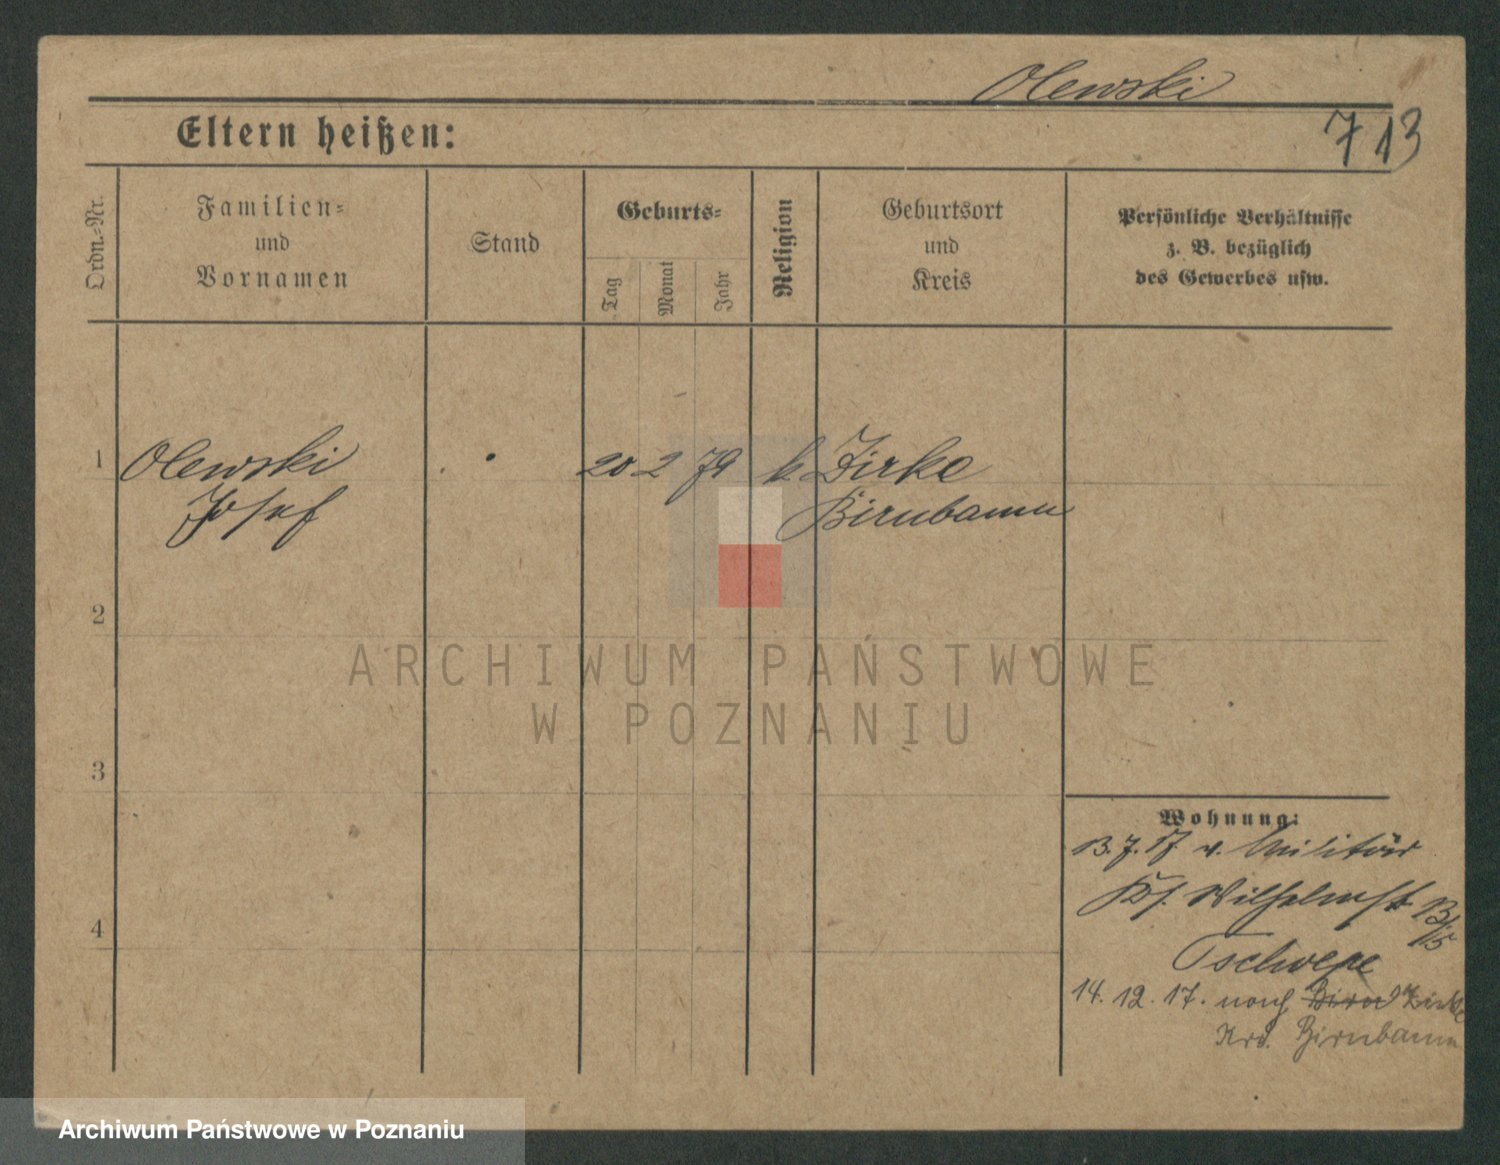 Olewski
Eltern heißen:
713
Ordn.-Nr.
Familien-
und
Vornamen
Stand
Geburts-
Tag
Monat
Jahr
Religion
Geburtsort
und
Kreis
Persönliche Verhältnisse
z. B. bezüglich
des Gewerbes usw.
1 Olewski 20 2 79 k Zirke
Josef Birnbaum
2
ARCHIWUM PAŃSTWOWE
W POZNANIU
3
Wohnung:
13. 7. 17 v. Militär
Wilhelmst 13/15
Tschepe
4
14. 12. 17. nach Zirke
Krs. Birnbaum
Archiwum Państwowe w Poznaniu